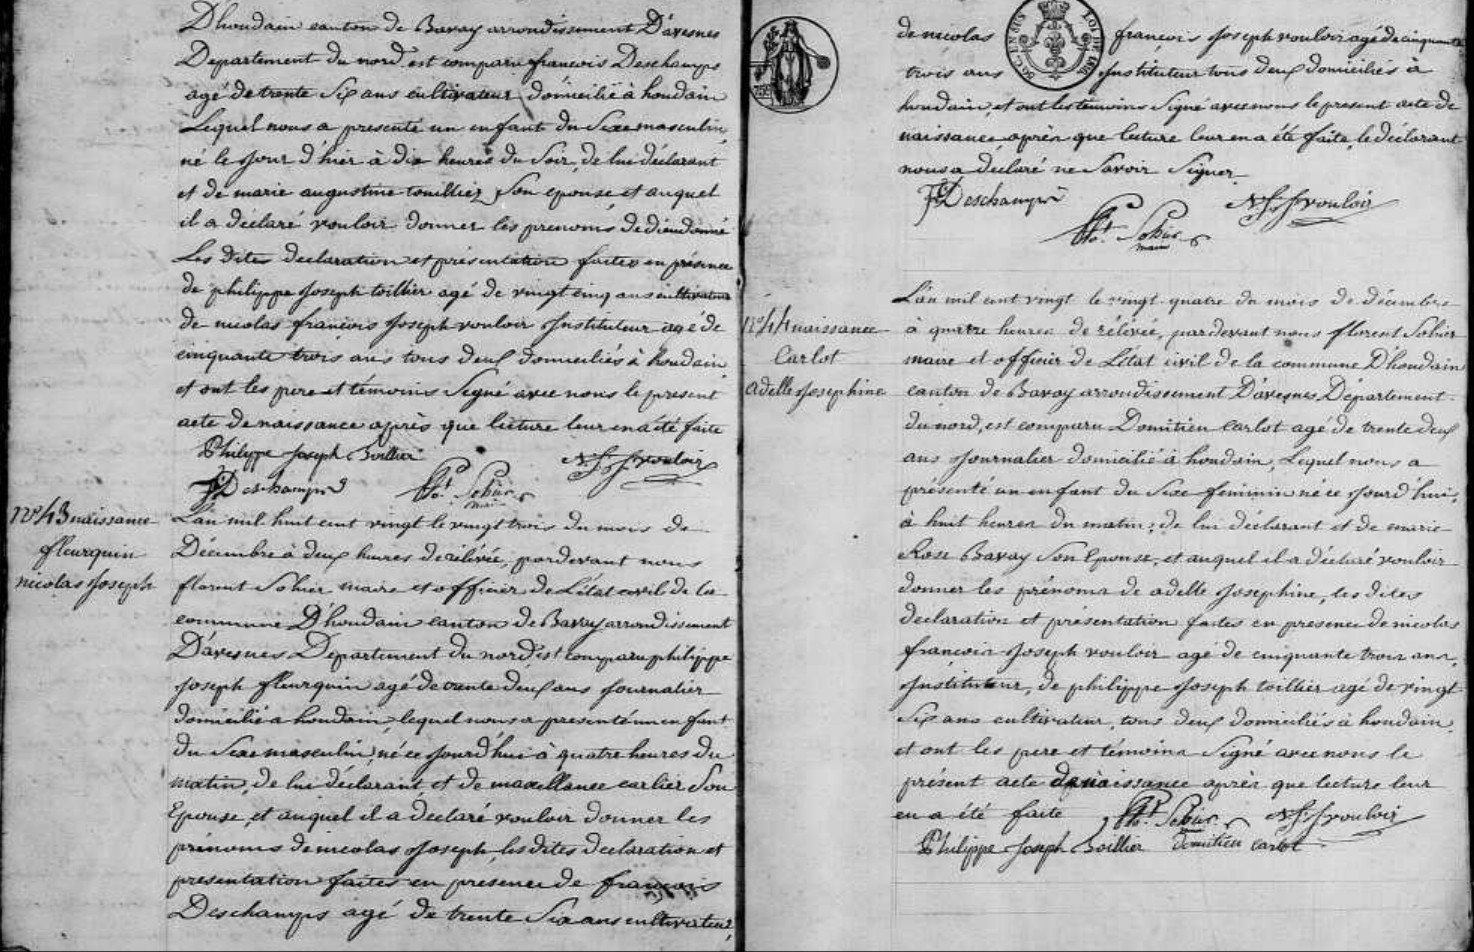 Dhoudain canton de Bavay arrondissement D'avesnes
Departement du nord est comparu françois Deschamps
agé de trente Six ans cultivateur domicilié à houdain
Lequel nous a presenté un enfant du Sexe masculin
né le jour d'hier à dix heures du Soir, de lui déclarant
et de marie augustine touillier Son epouse, et auquel
il a declaré vouloir donner les prenoms de dieudonné
Les dites declaration et présentation faites en présence
de philippe Joseph toillier agé de vingt cinq ans cultivateur
de nicolas françois Joseph vouloir Instituteur agé de
cinquante trois ans tous deux domiciliés à houdain
et ont les pere et témoins Signé avec nous le present
acte de naissance après que lecture leur en a été faite
Philippe Joseph Toillier N.f.J vouloir
F Deschamps fo.t Sohier
maire
N° 43 naissance
fleurquin
nicolas Joseph
L'an mil huit cent vingt le vingt trois du mois de
Décembre à deux heures de rélévée, pardevant nous
florent Sohier maire et officier de L'état civil de la
commune D'houdain canton de Bavay arrondissement
D'avesnes Departement du nord est comparu philippe
Joseph fleurquin agé de trente deux ans Journalier
domicilié a houdain, lequel nous a presenté un enfant
du Sexe masculin, né ce Jourd'hui à quatre heures du
matin, de lui déclarant et de maxellance carlier Son
Epouse, et auquel il a declaré vouloir donner les
prénoms de nicolas Joseph, les dites declaration et
presentation faites en presence de françois
Deschamps agé de trente Six ans cultivateur,
de nicolas françois Joseph vouloir agé de cinquante
trois ans Instituteur tous deux domiciliés à
houdain, et ont les témoins Signé avec nous le present acte de
naissance après que lecture leur en a été faite, le déclarant
nous a déclaré ne Savoir Signer
F Deschamps N.f.J vouloir
fo.t Sohier
maire
N° 44 naissance
Carlot
adelle Josephine
L'an mil cent vingt le vingt quatre du mois de décembre
à quatre heures de rélévée, pardevant nous florent Sohier
maire et officier de L'état civil de la commune D'houdain
canton de Bavay arrondissement D'avesnes Département
du nord, est comparu Domitien Carlot agé de trente deux
ans Journalier domicilié à houdain, Lequel nous a
présenté un enfant du Sexe feminin né ce Jourd'hui,
à huit heures du matin, de lui déclarant et de marie
Rose Bavay Son Epouse, et auquel il a déclaré vouloir
donner les prénoms de adelle Josephine, les dites
declaration et présentation faites en presence de nicolas
françois Joseph vouloir agé de cinquante trois ans,
Instituteur, de philippe Joseph toillier agé de vingt
Six ans cultivateur, tous deux domiciliés à houdain
et ont les pere et témoins Signé avec nous le
présent acte de naissance après que lecture leur
en a été faite fo.t Sohier N.f.J vouloir
Philippe Joseph Toillier domitien carlot